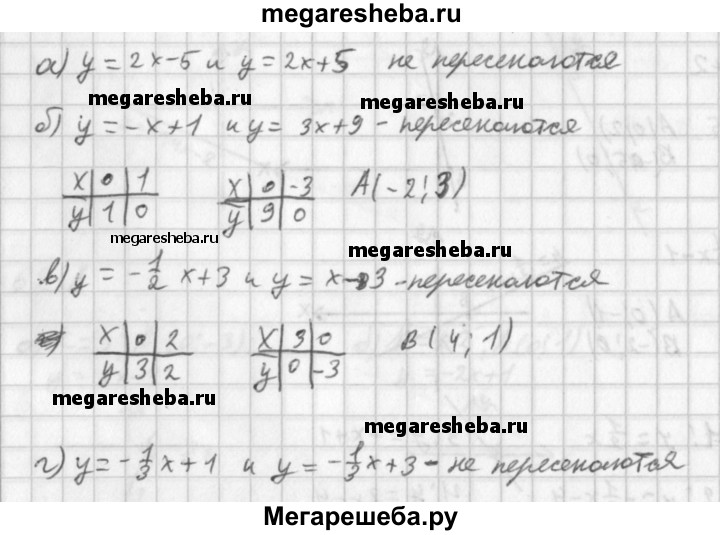 megaresheba.ru
а) y = 2x-5 и y = 2x+5 не пересекаются
megaresheba.ru megaresheba.ru
б) y = -x+1 и y = 3x+9 - пересекаются
x | 0 | 1 x | 0 | -3 A(-2; 3)
y | 1 | 0 y | 9 | 0
megaresheba.ru megaresheba.ru
в) y = -1/2 x+3 и y = x-3 - пересекаются
x | 0 | 2 x | 3 | 0 B(4; 1)
y | 3 | 2 y | 0 | -3
megaresheba.ru megaresheba.ru
г) y = -1/3 x+1 и y = -1/3 x+3 - не пересекаются
Мегарешеба.ру